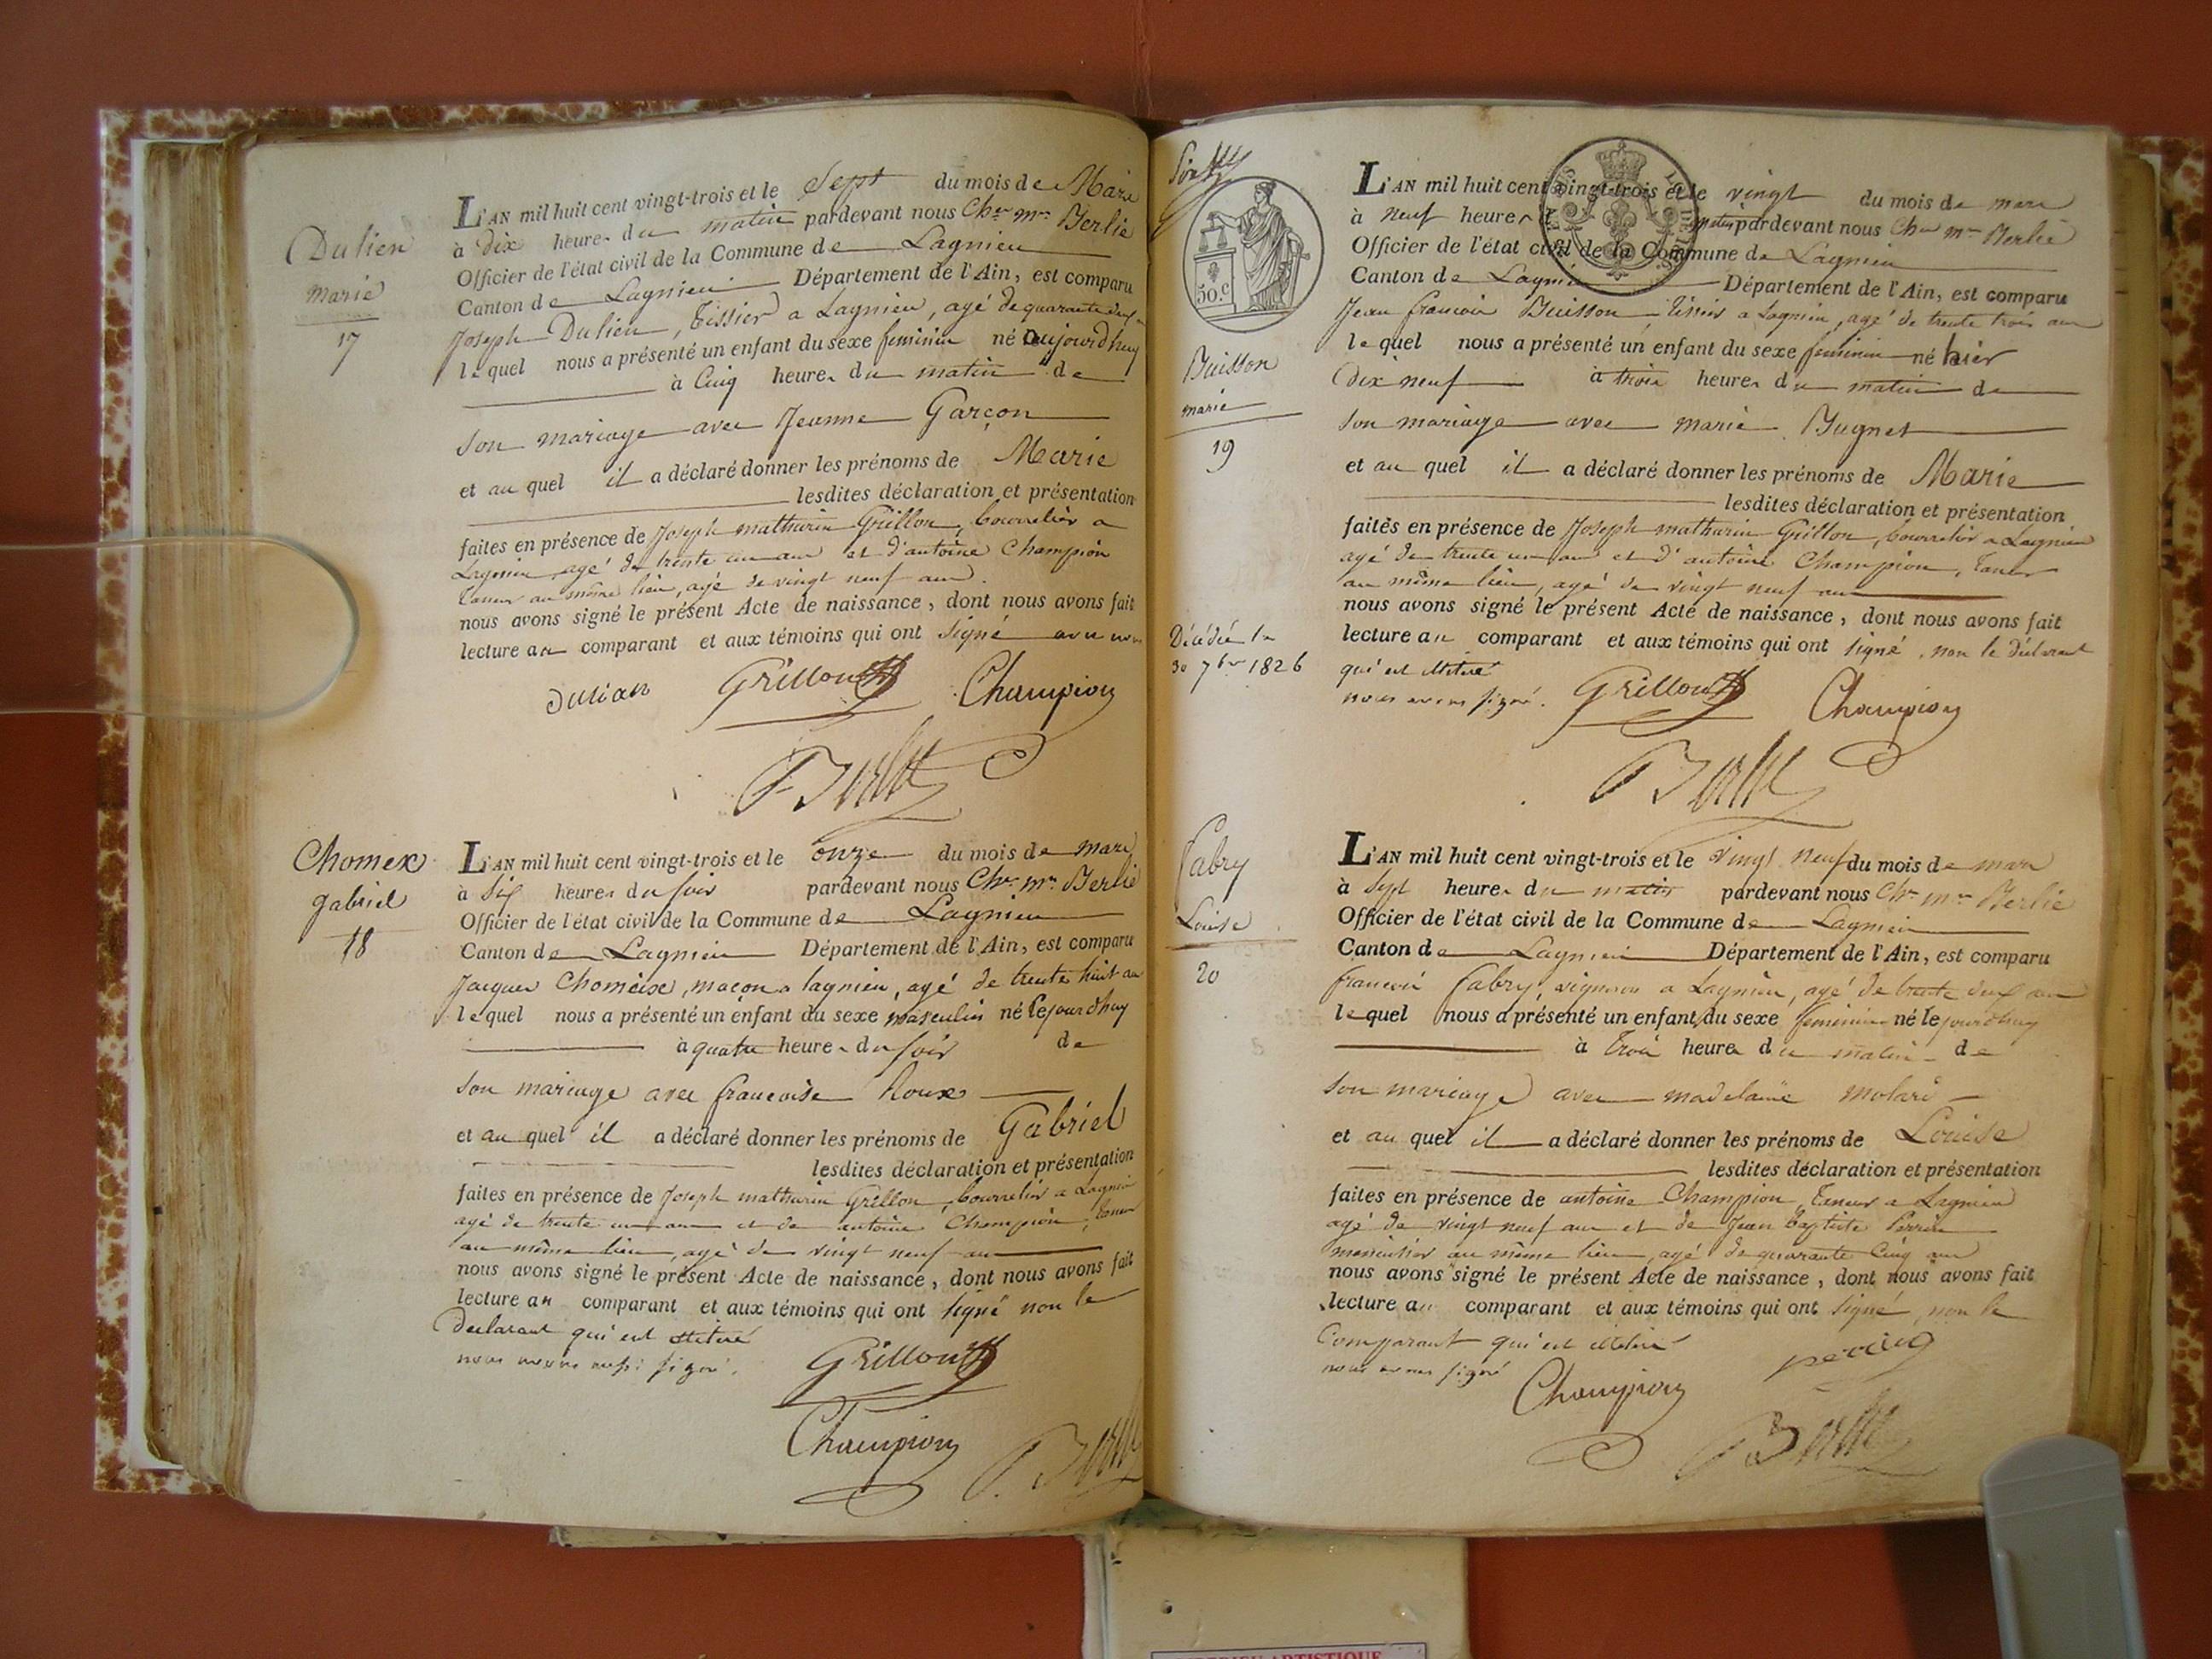 Dulien
Marie
17
L'AN mil huit cent vingt-trois et le Sept du mois de Mars
à dix heures du matin pardevant nous Chr mce Berlié
Officier de l'état civil de la Commune de Lagnieu
Canton de Lagnieu Département de l'Ain, est comparu
Joseph Dulien, Tissier a Lagnieu, agé de quarante deux
lequel nous a présenté un enfant du sexe feminin né aujourd'huy
à Cinq heures du matin de
son mariage avec Jeanne Garçon
et au quel il a déclaré donner les prénoms de Marie
lesdites déclaration et présentation
faites en présence de Joseph mathurin Grillon, bourrelier a
Lagnieu agé de trente un ans et d'antoine Champion
Taneur au même lieu, agé de vingt neuf ans
nous avons signé le présent Acte de naissance, dont nous avons fait
lecture au comparant et aux témoins qui ont signé avec nous
Dulian Grillon Champion
Berlié
Chomex
gabriel
18
L'AN mil huit cent vingt-trois et le onze du mois de mars
à six heures du soir pardevant nous Chr mce Berlié
Officier de l'état civil de la Commune de Lagnieu
Canton de Lagnieu Département de l'Ain, est comparu
Jacques Chomeixe, maçon a lagnieu, agé de trente huit ans
lequel nous a présenté un enfant du sexe masculin né cejourd'huy
à quatre heures du soir de
son mariage avec francoise Roux
et au quel il a déclaré donner les prénoms de Gabriel
lesdites déclaration et présentation
faites en présence de Joseph mathurin Grillon, bourrelier a Lagnieu
agé de trente un ans et de antoine Champion, taneur
au même lieu, agé de vingt neuf ans
nous avons signé le présent Acte de naissance, dont nous avons fait
lecture au comparant et aux témoins qui ont signé non le
declarant qui est illitéré
nous avons aussi signé.
Grillon
Champion
Berlié
50.c
Buisson
marie
19
Décédée le
30 7bre 1826
L'AN mil huit cent vingt-trois et le vingt du mois de mars
à neuf heures du matin pardevant nous Chr mce Berlié
Officier de l'état civil de la Commune de Lagnieu
Canton de Lagnieu Département de l'Ain, est comparu
Jean francois Buisson Tissier a Lagnieu, agé de trente trois ans
lequel nous a présenté un enfant du sexe feminin né hier
dix neuf à trois heures du matin de
son mariage avec marie Bugnet
et au quel il a déclaré donner les prénoms de Marie
lesdites déclaration et présentation
faites en présence de Joseph mathurin Grillon, bourrelier a Lagnieu
agé de trente un ans et d'antoine Champion, Taneur
au même lieu, agé de vingt neuf ans
nous avons signé le présent Acte de naissance, dont nous avons fait
lecture au comparant et aux témoins qui ont signé, non le déclarant
qui est illitéré
nous avons signé. Grillon Champion
Berlié
Cabry
Louise
20
L'AN mil huit cent vingt-trois et le vingt neuf du mois de mars
à sept heures du matin pardevant nous Chr mce Berlié
Officier de l'état civil de la Commune de Lagnieu
Canton de Lagnieu Département de l'Ain, est comparu
francois Cabry, vigneron a Lagnieu, agé de trente deux ans
lequel nous a présenté un enfant du sexe feminin né cejourd'huy
à Trois heures du matin de
son mariage avec madelaine molard
et au quel il a déclaré donner les prénoms de Louise
lesdites déclaration et présentation
faites en présence de antoine Champion, Taneur a Lagnieu
agé de vingt neuf ans et de Jean Baptiste Perrin
menuisier au même lieu, agé de quarante Cinq ans
nous avons signé le présent Acte de naissance, dont nous avons fait
lecture au comparant et aux témoins qui ont signé, non le
Comparant qui est illitéré
nous avons signé
Champion
Berlié
ARTISTIQUE